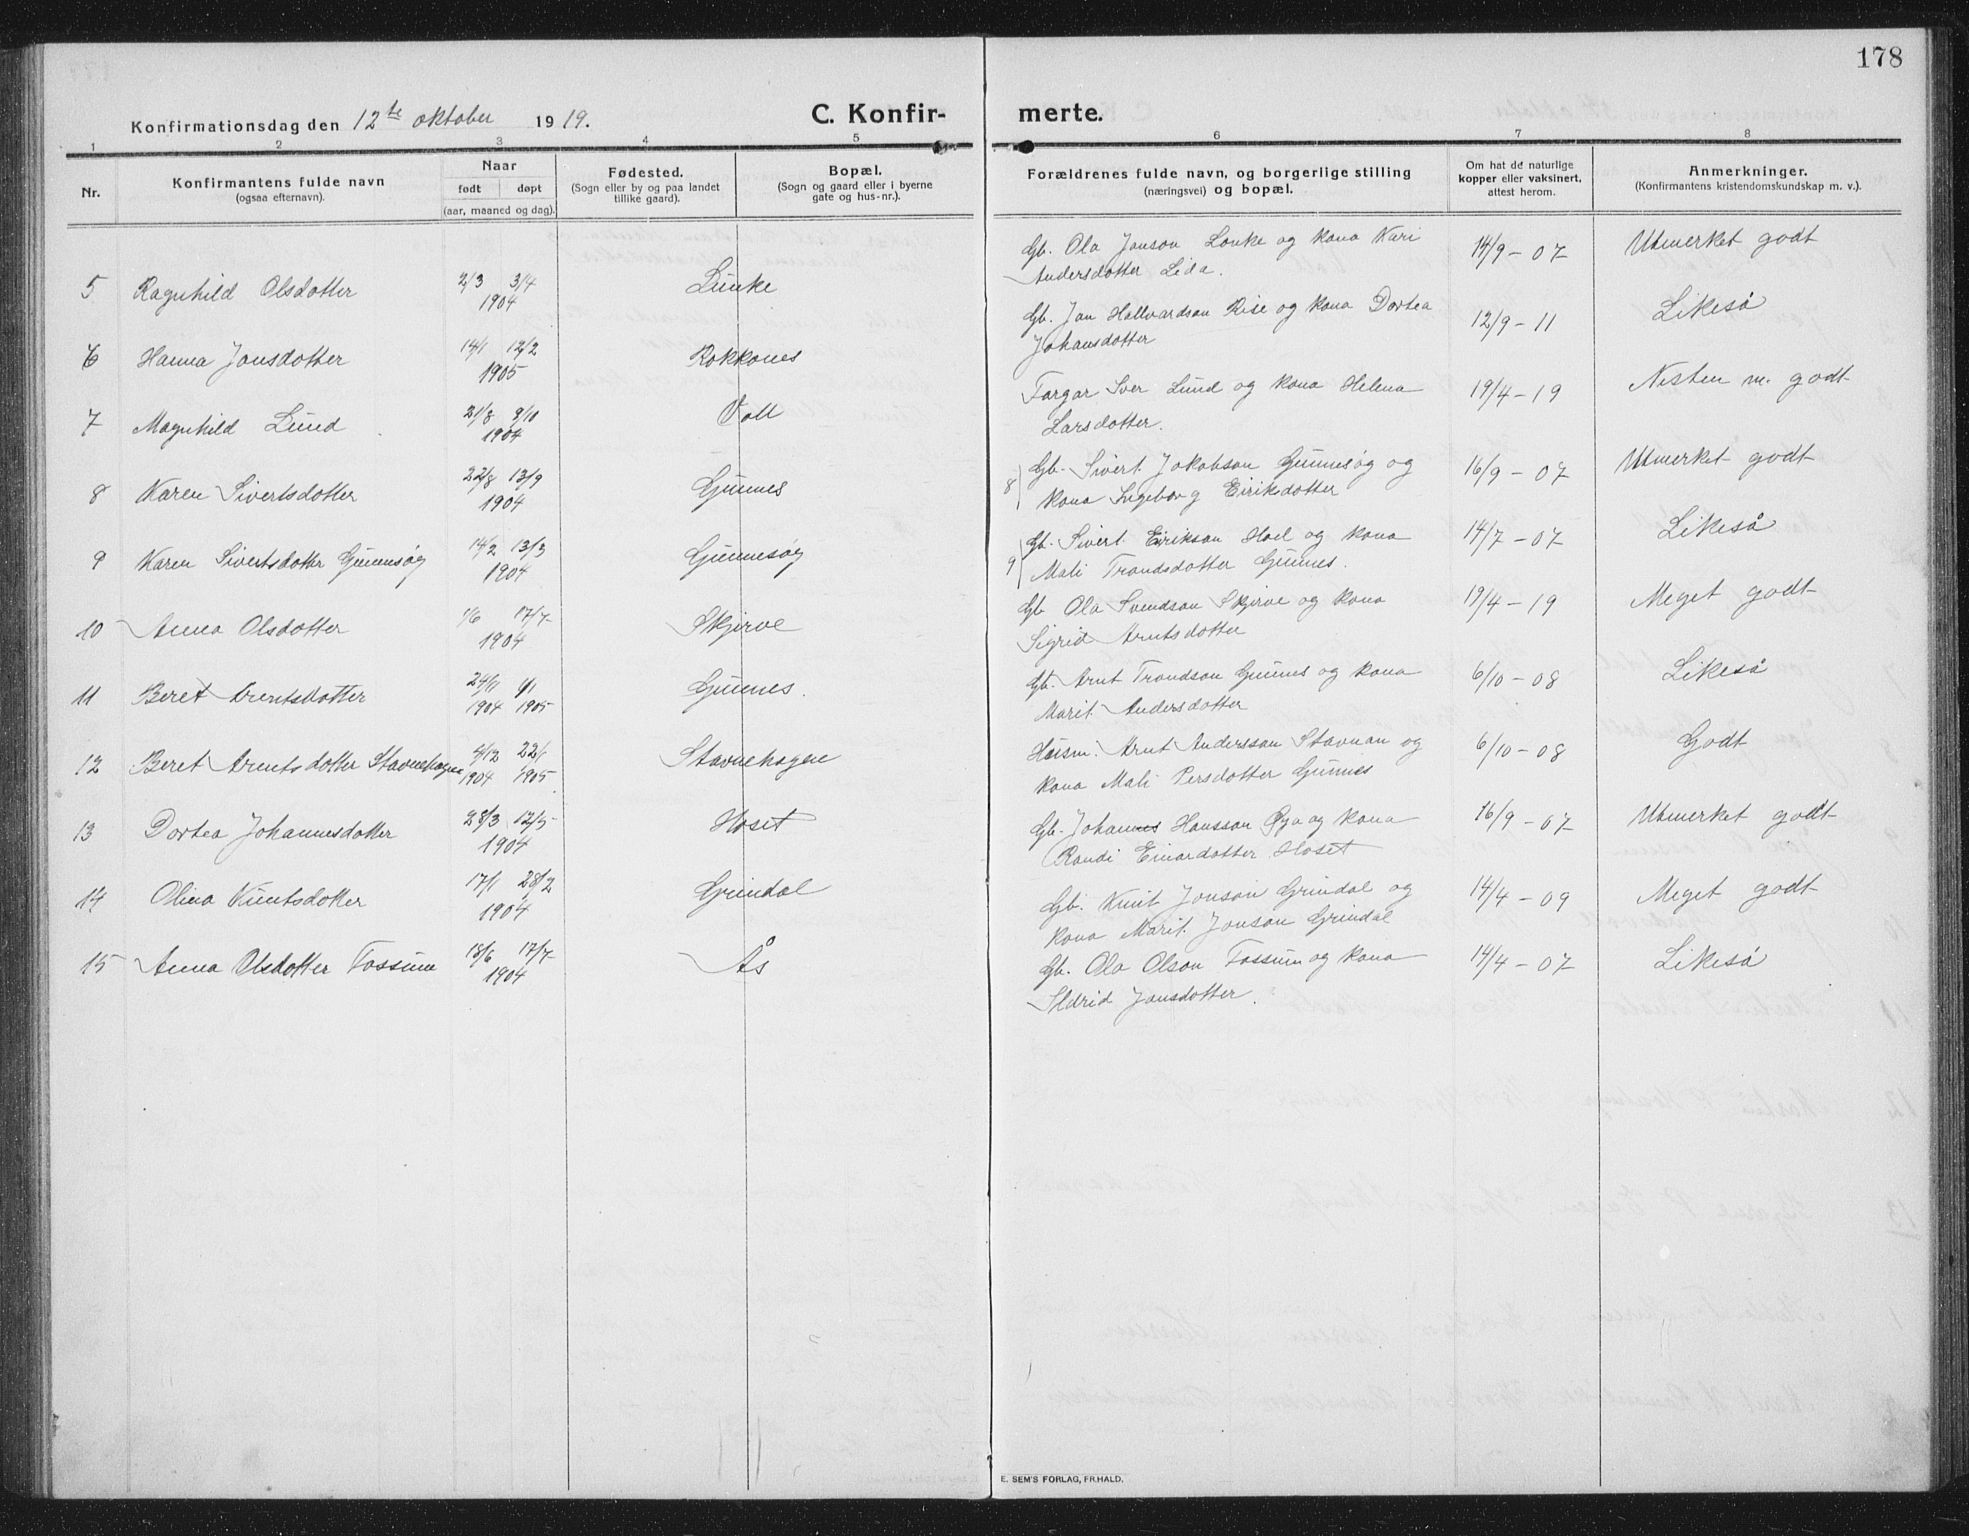 178
Konfirmationsdag den 12te oktober 1919.
C. Konfirmerte.
1 2 3 4 5 6 7 8
Nr.
Konfirmantens fulde navn
(ogsaa efternavn).
Naar
født døpt
(aar, maaned og dag).
Fødested.
(Sogn eller by og paa landet
tillike gaard).
Bopæl.
(Sogn og gaard eller i byerne
gate og hus-nr.).
Forældrenes fulde navn, og borgerlige stilling
(næringsvei) og bopæl.
Om hat de naturlige
kopper eller vaksinert,
attest herom.
Anmerkninger.
(Konfirmantens kristendomskundskap m. v.).
5 Ragnhild Olsdotter 2/3 3/4 1904 Lunke
Gb. Ola Jonson Lonke og kona Kari
Andersdotter Lida.
14/9-07 Utmerket godt
6 Hanna Jonsdotter 14/1 12/2 1905 Rokkones
Gb. Jon Hallvardson Rise og kona Dortea
Johansdotter
12/9-11 Likeså
7 Magnhild Lund 21/8 9/10 1904 Voll
Fargar Iver Lund og kona Helena
Larsdotter.
19/4-19 Nesten m. godt
8 Karen Sivertsdotter 22/8 13/9 1904 Gunnes
8 Gb. Sivert Jakobson Gunnesøg og
kona Ingeborg Eiriksdotter
16/9-07 Utmerket godt
9 Karen Sivertsdotter Gunnesøg 14/2 13/3 1904 Gunnesøg
9 Gb. Sivert Eirikson Hoel og kona
Mali Trondsdotter Gunnes.
14/7-07 Likeså
10 Anna Olsdotter 1/6 17/7 1904 Skjerve
Gb. Ola Svendson Skjerve og kona
Sigrid Arntsdotter
19/4-19 Meget godt
11 Beret Arentsdotter 24/11 1904 1/1 1905 Gunnes.
Gb. Arnt Trondson Gunnes og kona
Marit Andersdotter
6/10-08 Likeså
12 Beret Arentsdotter Stavnehagen 4/12 1904 22/1 1905 Stavnehagen
Husm. Arnt Andersson Stavnan og
kona Mali Persdotter Gunnes
6/10-08 Godt
13 Dortea Johannesdotter 28/3 12/5 1904 Hoset
Gb. Johannes Hansson Øya og kona
Randi Einardotter Hoset
16/9-07 Utmerket godt
14 Olina Knutsdotter 17/1 28/2 1904 Grindal
Gb. Knut Jonson Grindal og
kona Marit Jonson Grindal
14/4-09 Meget godt
15 Anna Olsdotter Fossum 18/6 17/7 1904 Ås
Gb. Ola Olson Fossum og kona
Ildrid Jonsdotter.
14/4-07 Likeså
E. SEM'S FORLAG, FR.HALD.